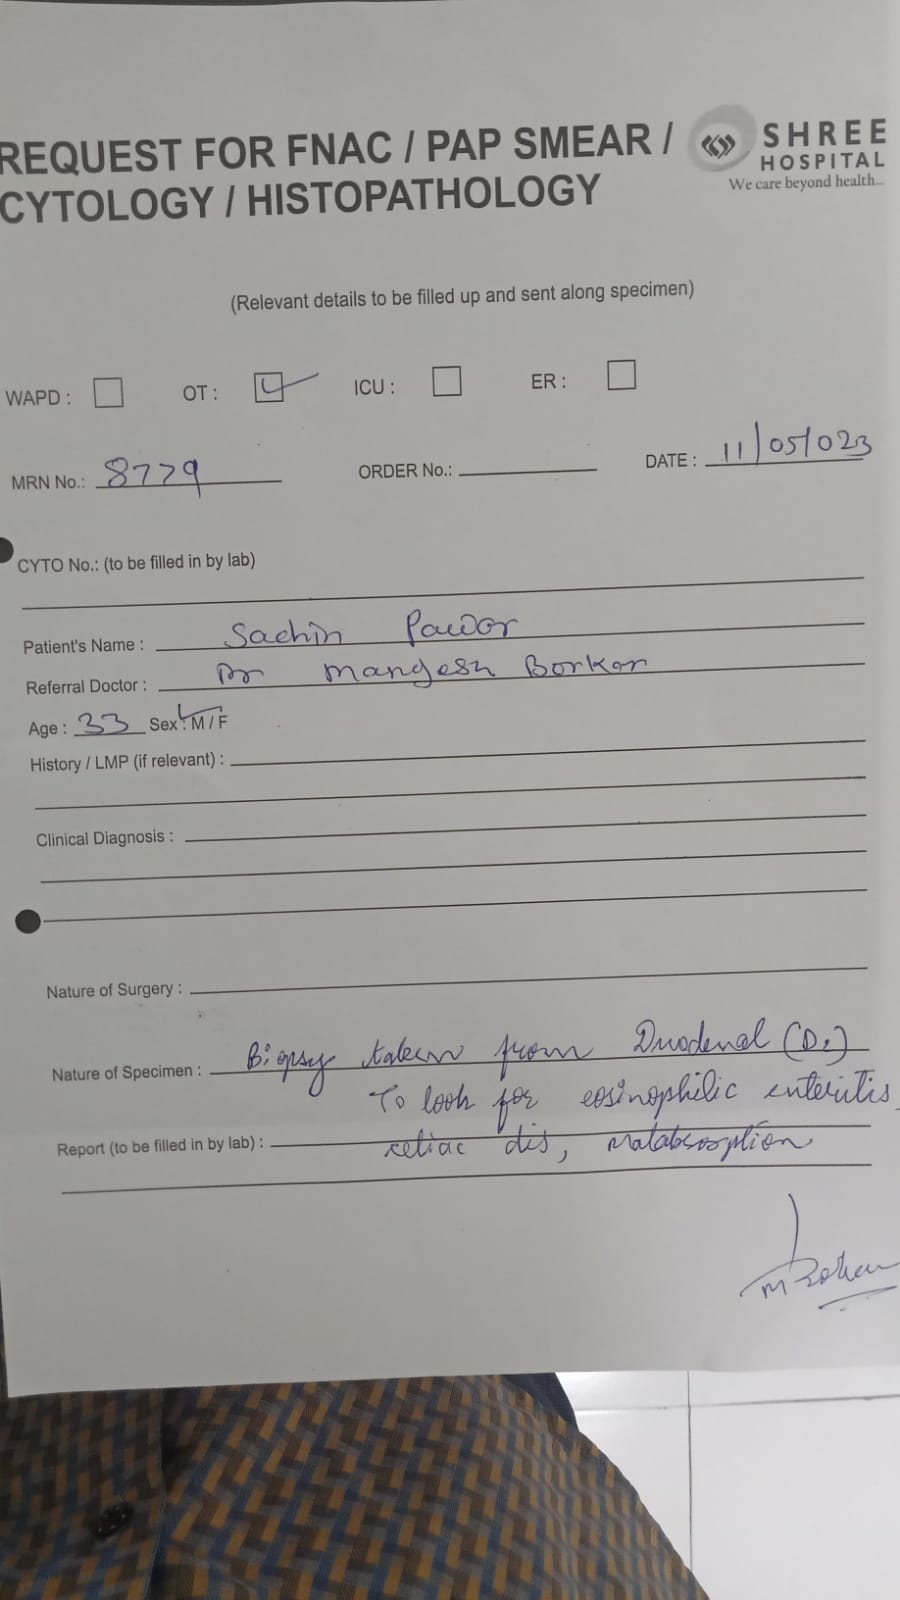 REQUEST FOR FNAC / PAP SMEAR /
CYTOLOGY / HISTOPATHOLOGY
SHREE
HOSPITAL
We care beyond health...
(Relevant details to be filled up and sent along specimen)
WAPD : OT : ICU : ER :
MRN No.: 8779 ORDER No.: DATE : 11/05/023
CYTO No.: (to be filled in by lab)
Patient's Name : Sachin Pawar
Referral Doctor : Dr Mangesh Borkar
Age : 33 Sex : M / F
History / LMP (if relevant) :
Clinical Diagnosis :
Nature of Surgery :
Nature of Specimen : Biopsy taken from Duodenal (D2)
To look for eosinophilic enteritis,
Report (to be filled in by lab) : celiac dis, malabsorption